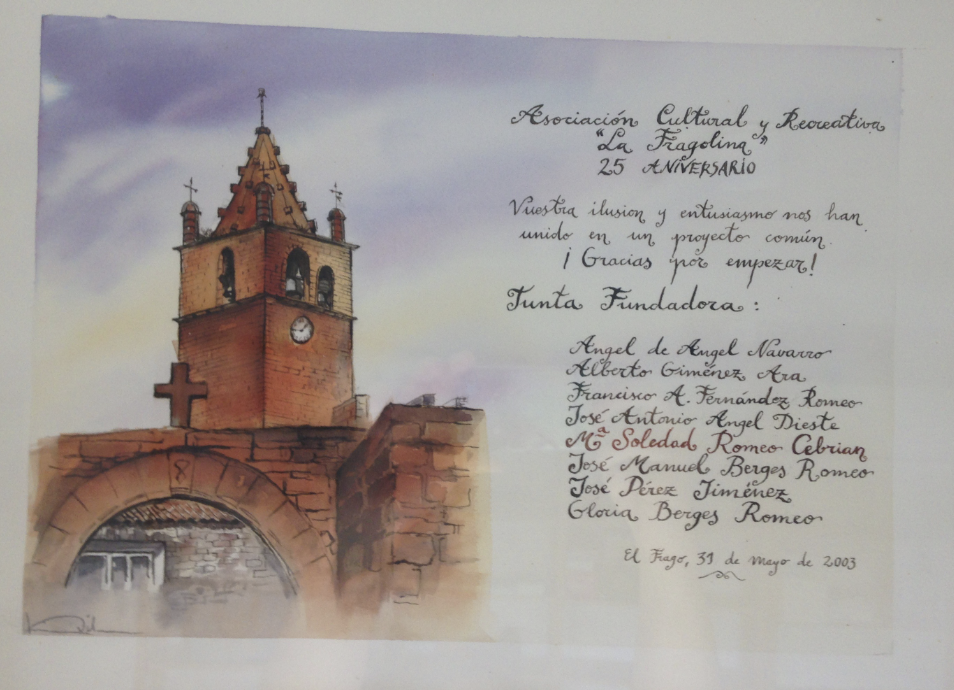 Asociación Cultural y Recreativa
"La Fragolina"
25 ANIVERSARIO
Vuestra ilusion y entusiasmo nos han
unido en un proyecto común.
¡Gracias por empezar!
Junta Fundadora :
Angel de Angel Navarro
Alberto Giménez Ara
Francisco A. Fernández Romeo
José Antonio Angel Dieste
Mª Soledad Romeo Cebrian
José Manuel Berges Romeo
José Pérez Jiménez
Gloria Berges Romeo
El Frago, 31 de mayo de 2003